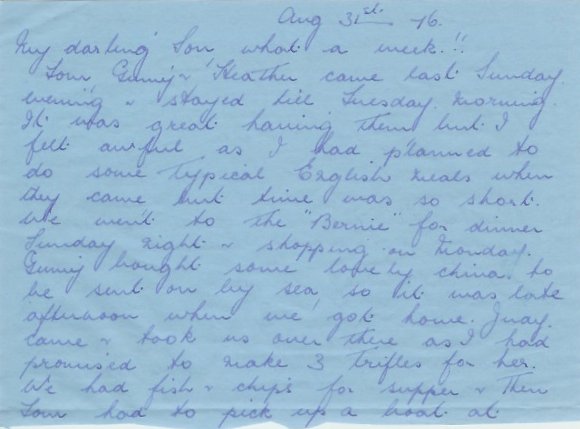 Aug 31st. 76.
My darling Son what a week.!!
Tom Ginny & Heather came last Sunday
evening & stayed till Tuesday. Morning.
It was great having them but I
felt awful as I had planned to
do some typical English meals when
they came but time was so short.
We went to the "Bernie" for dinner
Sunday night & shopping on Monday.
Ginny bought some lovely china. to
be sent on by sea, so it was late
afternoon when we got home.
came & took us over there as I had
promised to make 3 trifles for her.
We had fish & chips for supper & then
Tom had to pick up a boat at